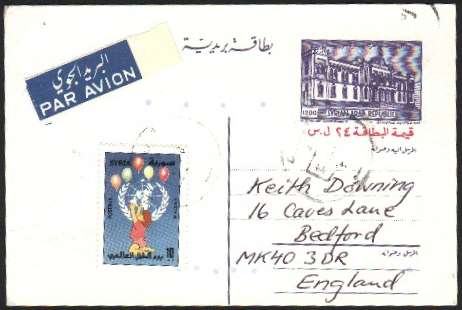 البريد الجوي
PAR AVION
بطاقة بريدية
1200
SYRIAN ARAB REPUBLIC
قيمة البطاقة ٢٤ ل.س
المرسل اليه وعنوانه
SYRIA سورية
POSTAGE
يوم الطفل العالمي
10
Keith Downing
16 Caves Lane
Bedford
المرسل وعنوانه
MK40 3DR
England